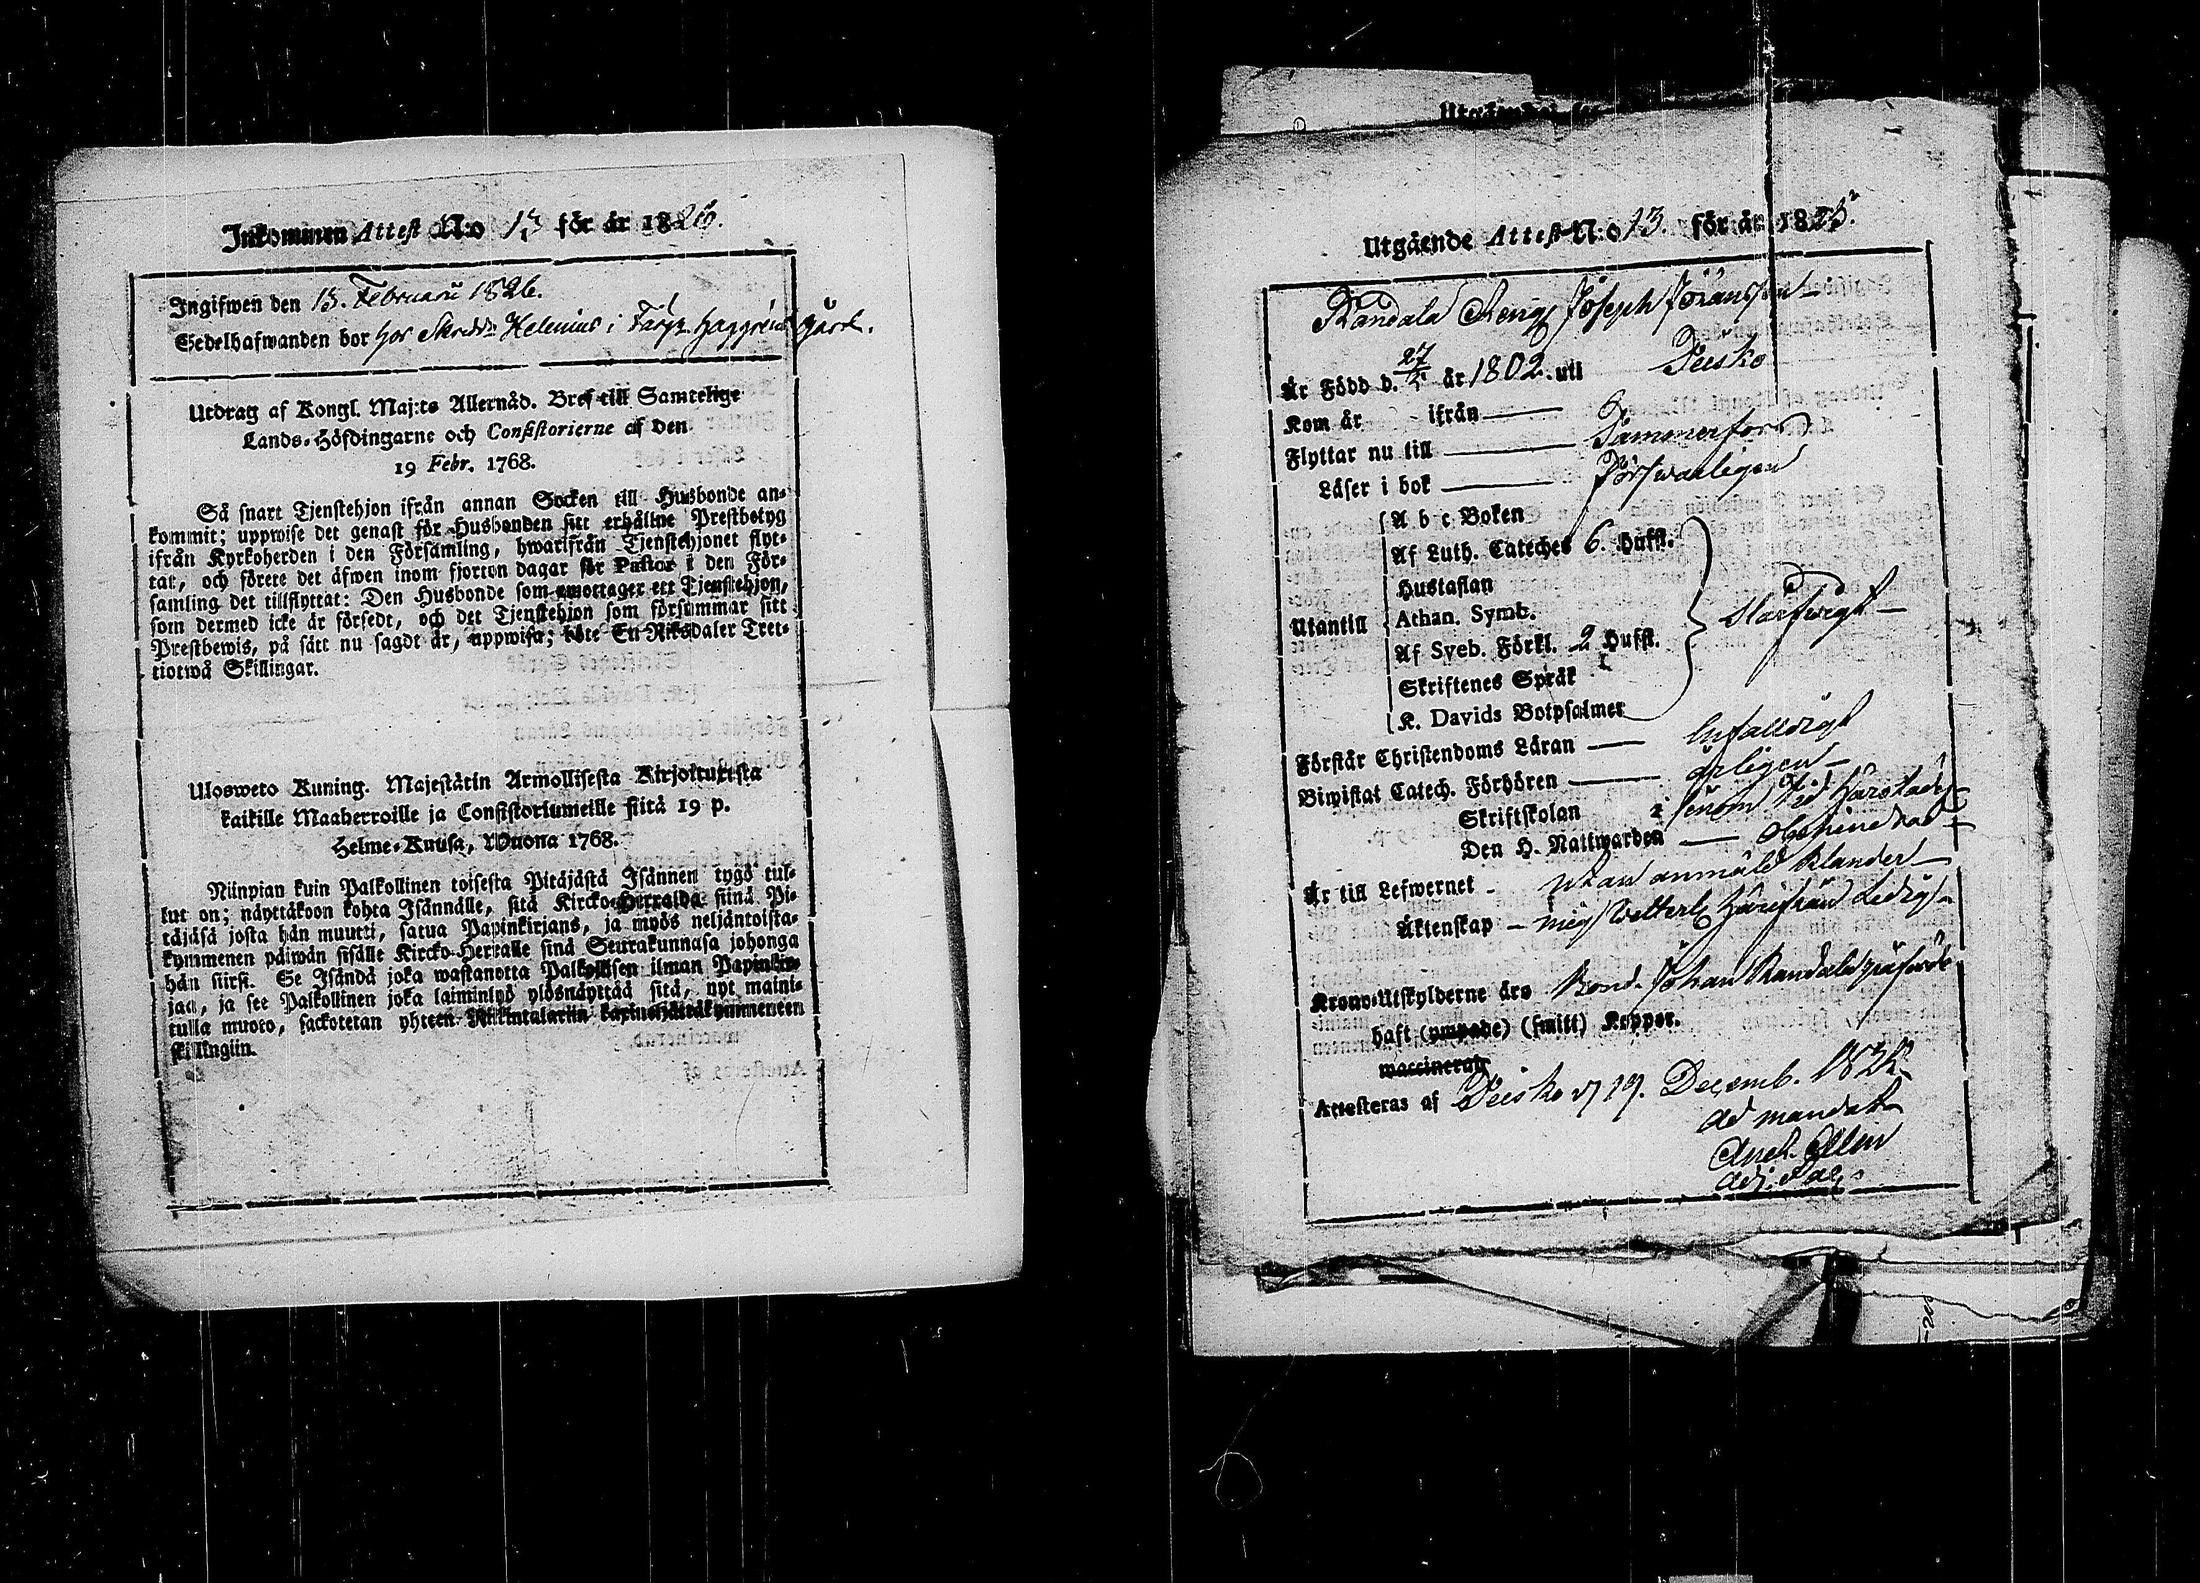 Inkommen Attest N:o 13 för år 1826.
Ingifwen den 13. Februarii 1826.
Sedelhafwanden bor hos Skrädd: Helenius i Färg: Haggréns gård.
Utdrag af Kongl. Maj:ts Allernåd. Bref till Samtelige
Lands-Höfdingarne och Consistorierne af den
19 Febr. 1768.
Så snart Tjenstehjon ifrån annan Socken till Husbonde an-
kommit; uppwise det genast för Husbonden sitt erhållne Prestbetyg
ifrån Kyrkoherden i den Församling, hwarifrån Tjenstehjonet flyt-
tat, och förete det äfwen inom fjorton dagar för Pastor i den För-
samling det tillflyttat: Den Husbonde som emottager ett Tjenstehjon,
som dermed icke är försedt, och det Tjenstehjon som försummar sitt
Prestbewis, på sätt nu sagdt är, uppwisa; böte En Riksdaler Tret-
tiotwå Skillingar.
Ulosweto Kuning. Majestätin Armollisesta Kirjoituxesta
kaikille Maaherroille ja Consistoriumeille siitä 19 p.
Helme-Kuusa, Wuona 1768.
Niinpian kuin Palkollinen toisesta Pitäjästä Isännen tygö tul-
lut on; näyttäkoon kohta Isännälle, sitä Kircko-Herralda siinä Pi-
täjäsä josta hän muutti, satua Papinkirjans, ja myös neljäntoista-
kymmenen päiwän sisälle Kircko-Herralle sinä Seurakunnasa johonga
hän siirsi. Se Isändä joka wastanotta Palkollisen ilman Papinkir-
jaa, ja see Palkollinen joka laiminlyö ylösnäyttää sitä, nyt maini-
tulla muoto, sackotetan yhteen Riikintalariin kaxineljättäkymmeneen
skillingiin.
Utgående Attest N:o 13. för år 1825.
Randala Dreng Joseph Jöransson
Är Född d. 27/3 år 1802. uti Teisko
Kom år ifrån
Flyttar nu till Tammerfors
Läser i bok Förswarligen
Utantill
A b c Boken
Af Luth. Cateches 6. Hufst.
Hustaflan
Athan. Symb.
Af Sveb. Förkl. 2 Hufst.
Skriftenes Språk
K. Davids Botpsalmer
Förstår Christendoms Läran Enfalldigt
Biwistat Catech. Förhören årligen
Skriftskolan
Den H. Nattwarden
Är till Lefwernet utan anmäld klander
Äktenskap
Krono-Utskylderne äro Bond. Johan Randala
haft (ympade) (smitt) Koppor.
waccinerad
Attesteras af Teisko d 19. Decemb. 1825.
ad mandat.